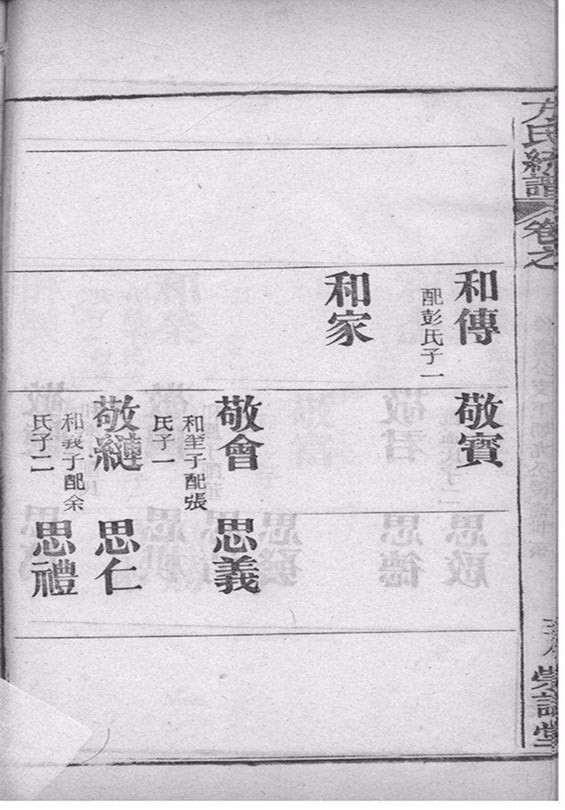 方氏統譜
卷之
和傳
配彭氏子一
敬賓
和家
敬會
和㘴子配張
氏子一
思義
敬繾
和義子配余
氏子二
思仁
思禮